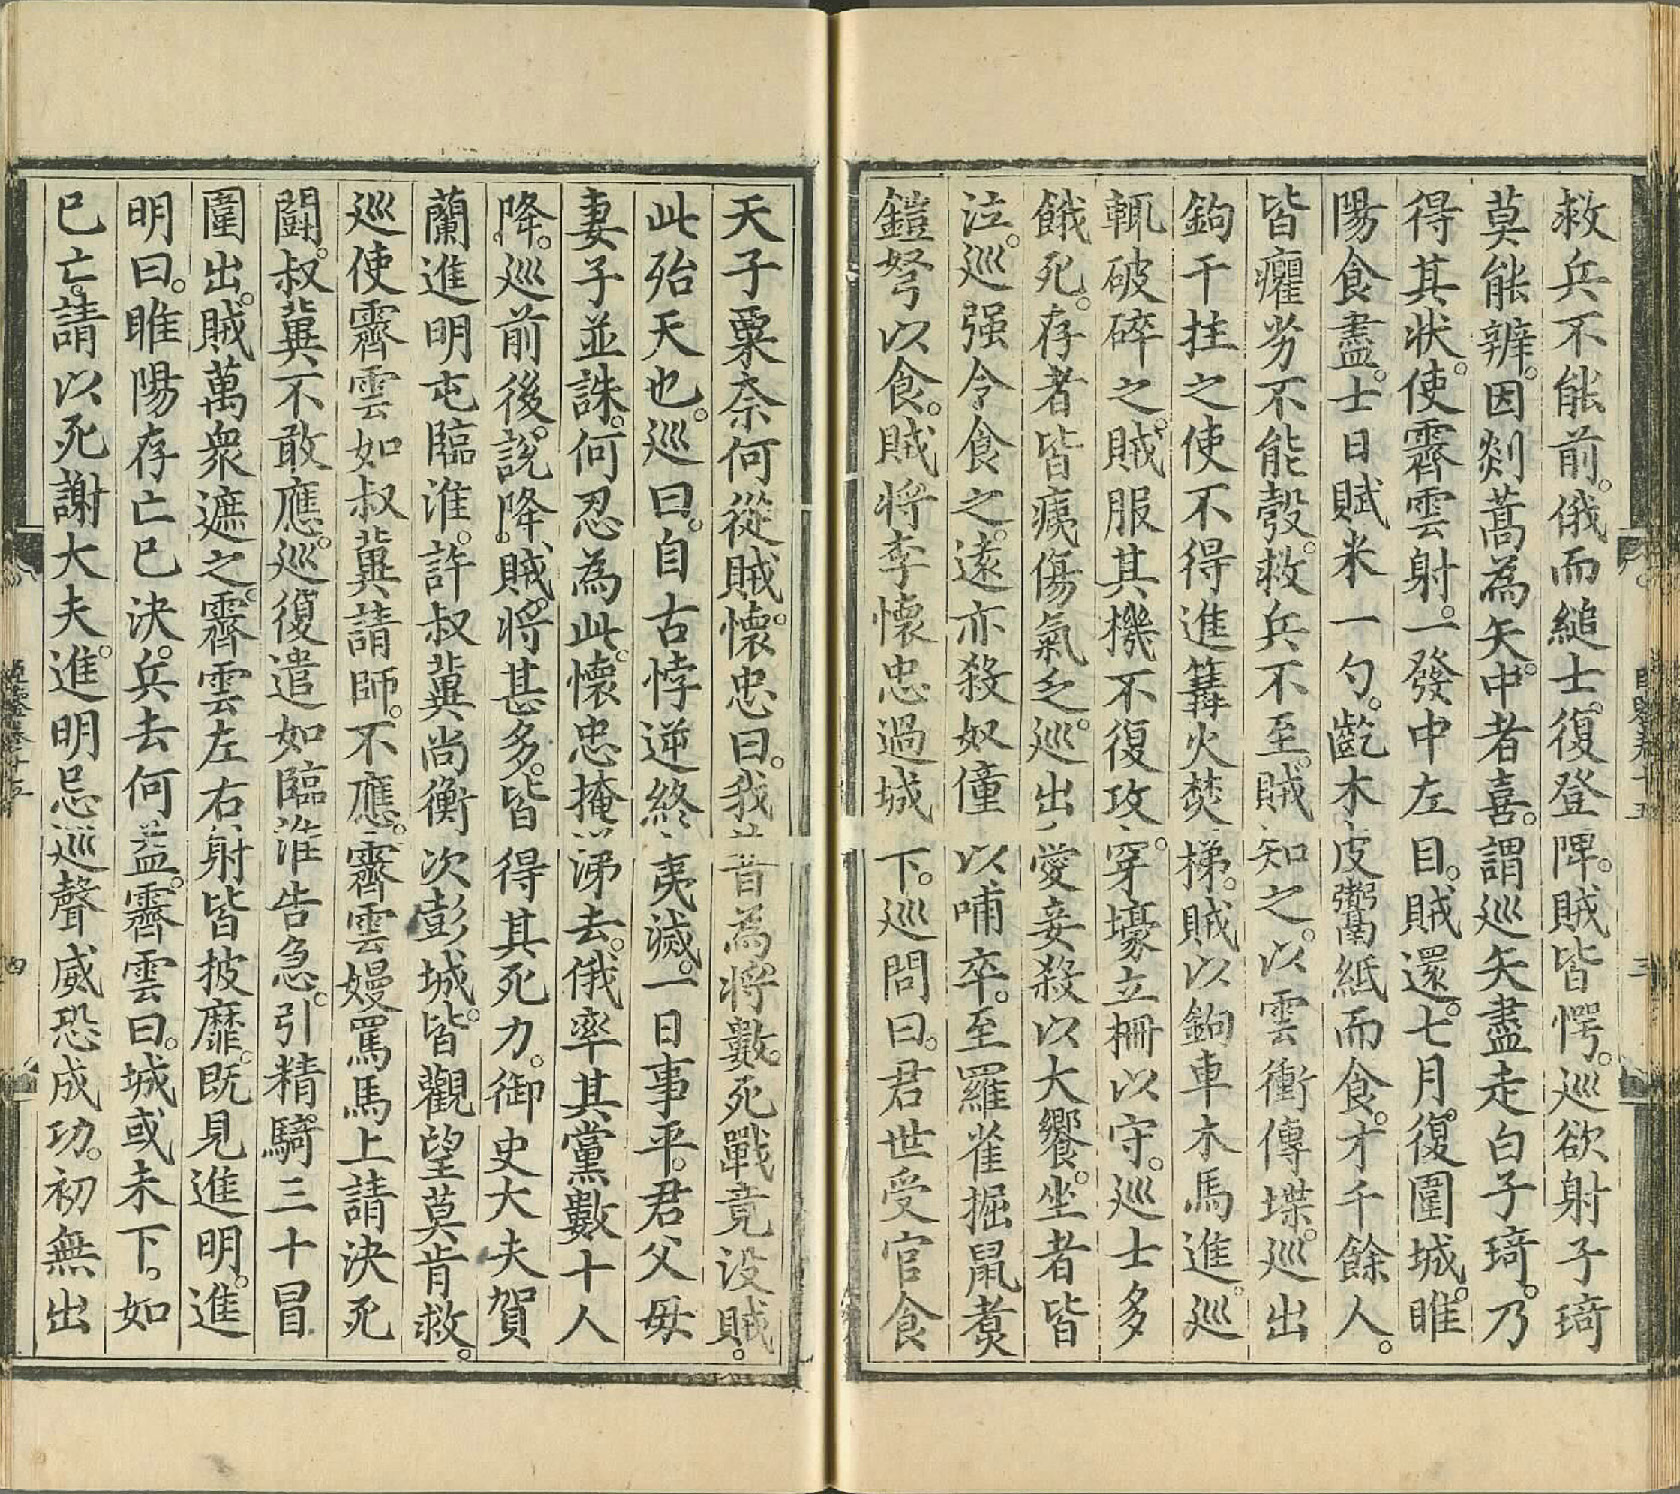 救兵不能前。俄而縋士。復登陴。賊皆愕。巡欲射子琦
莫能辨。因剡蒿為矢。中者喜。謂巡矢盡走白子琦。乃
得其狀。使霽雲射。一發中左目。賊還。七月。復圍城。睢
陽食盡。士日賦米一勺。齕木皮鬻紙而食。才千餘人。
皆癯劣不能彀。救兵不至。賊知之。以雲衝傅堞。巡出
鉤干拄之使不得進篝火焚梯。賊以鉤車木馬進。巡
輒破碎之。賊服其機不復攻。穿壕立柵以守。巡士多
餓死。存者皆痍傷氣乏。巡出愛妾殺以大饗。坐者皆
泣。巡强令食之。遠亦殺奴僮以哺卒。至羅雀掘鼠煑
鎧弩以食。賊將李懷忠過城下。巡問曰。君世受官食
天子粟奈何從賊。懷忠曰。我昔為將數。死戰竟没賊。
此殆天也。巡曰。自古悖逆終夷滅。一日事平。君父母
妻子並誅。何忍為此。懷忠掩涕去。俄率其黨數十人
降。巡前後。說降。賊。將甚多。皆得其死力。御史大夫賀
蘭進明屯臨淮。許叔冀尚衡次彭城。皆觀望莫肯救。
巡使霽雲如叔冀請師。不應。霽雲嫚罵馬上請決死
鬪。叔冀不敢應。巡復遣如臨淮告急。引精騎。三十冒
圍出。賊萬衆遮之。霽雲左右射皆披靡。既見進明。進
明曰。睢陽存亡已決。兵去何益。霽雲曰。城或未下。如
已亡。請以死謝大夫。進明忌巡聲威恐成功。初無出